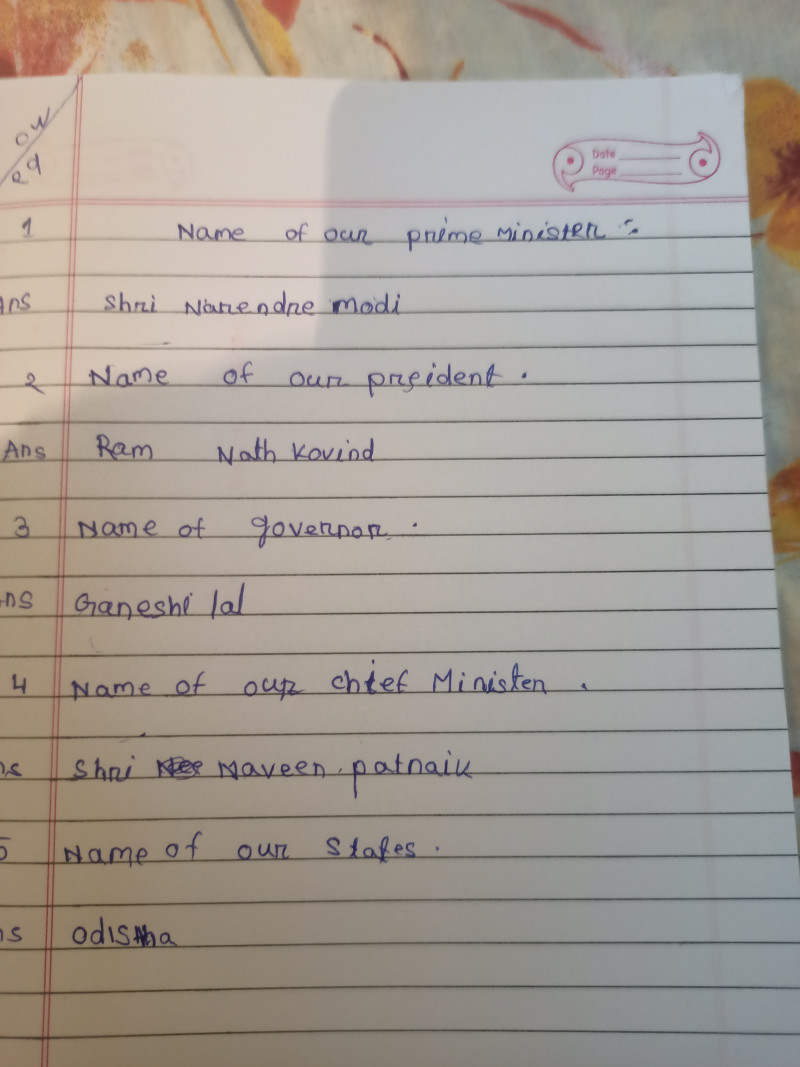 ow
ed
Date
Page
1 Name of our prime Minister :-
Ans Shri Narendre modi
2 Name of our prseident .
Ans Ram Nath Kovind
3 Name of governor .
ns Ganeshi lal
4 Name of our chief Minister .
ns Shri Naveen patnaik
5 Name of our States .
ns Odisha